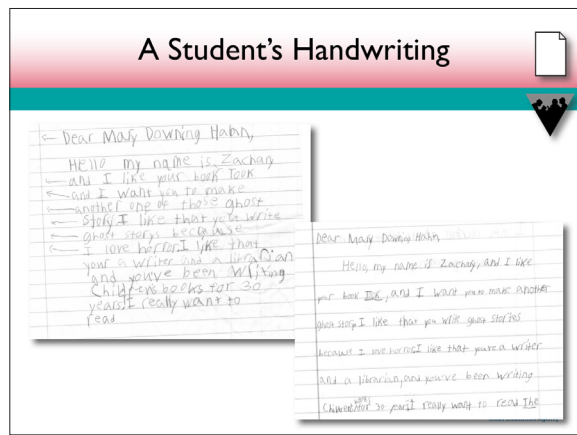 A Student's Handwriting
Dear Mary Downing Hahn,
Hello my name is Zachary
and I like your book Took
and I want you to make
another one of those ghost
story. I like that you write
ghost storys because
I love horror. I like that
your a writer and a librarian
and youve been writing
Children's books for 30
years. I really want to
read
Dear Mary Downing Hahn,
Hello, my name is Zachary, and I like
your book Took, and I want you to make another
ghost story. I like that you write ghost stories
because I love horror. I like that you're a writer
and a librarian, and you've been writing
for 30 years. I really want to read The